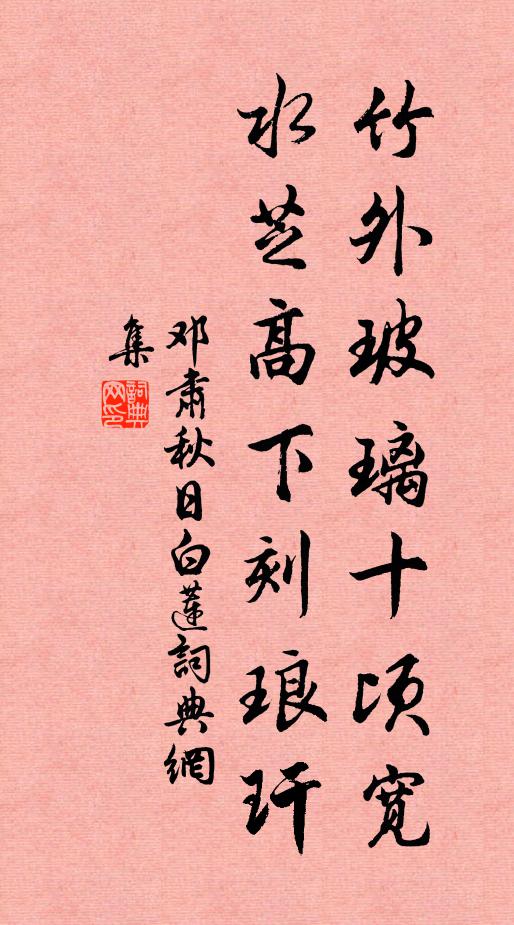 竹外玻璃十顷宽
水芝高下刻琅玕
邓肃秋日白莲詞典網
集
詞典
网印